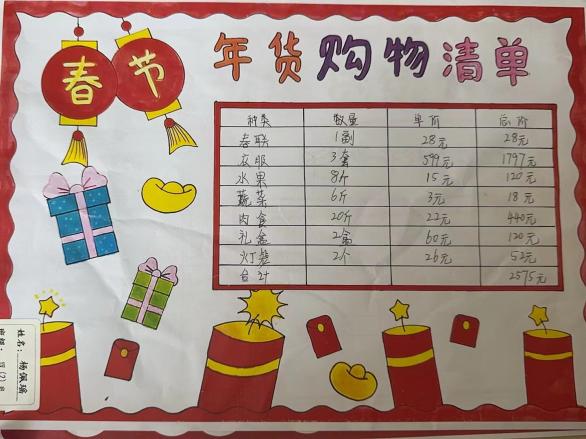 春节
年货购物清单
种类 数量 单价 总价
春联 1副 28元 28元
衣服 3套 599元 1797元
水果 8斤 15元 120元
蔬菜 6斤 3元 18元
肉食 20斤 22元 440元
礼盒 2盒 60元 120元
灯笼 2个 26元 52元
合计 2575元
姓名：杨佩瑶